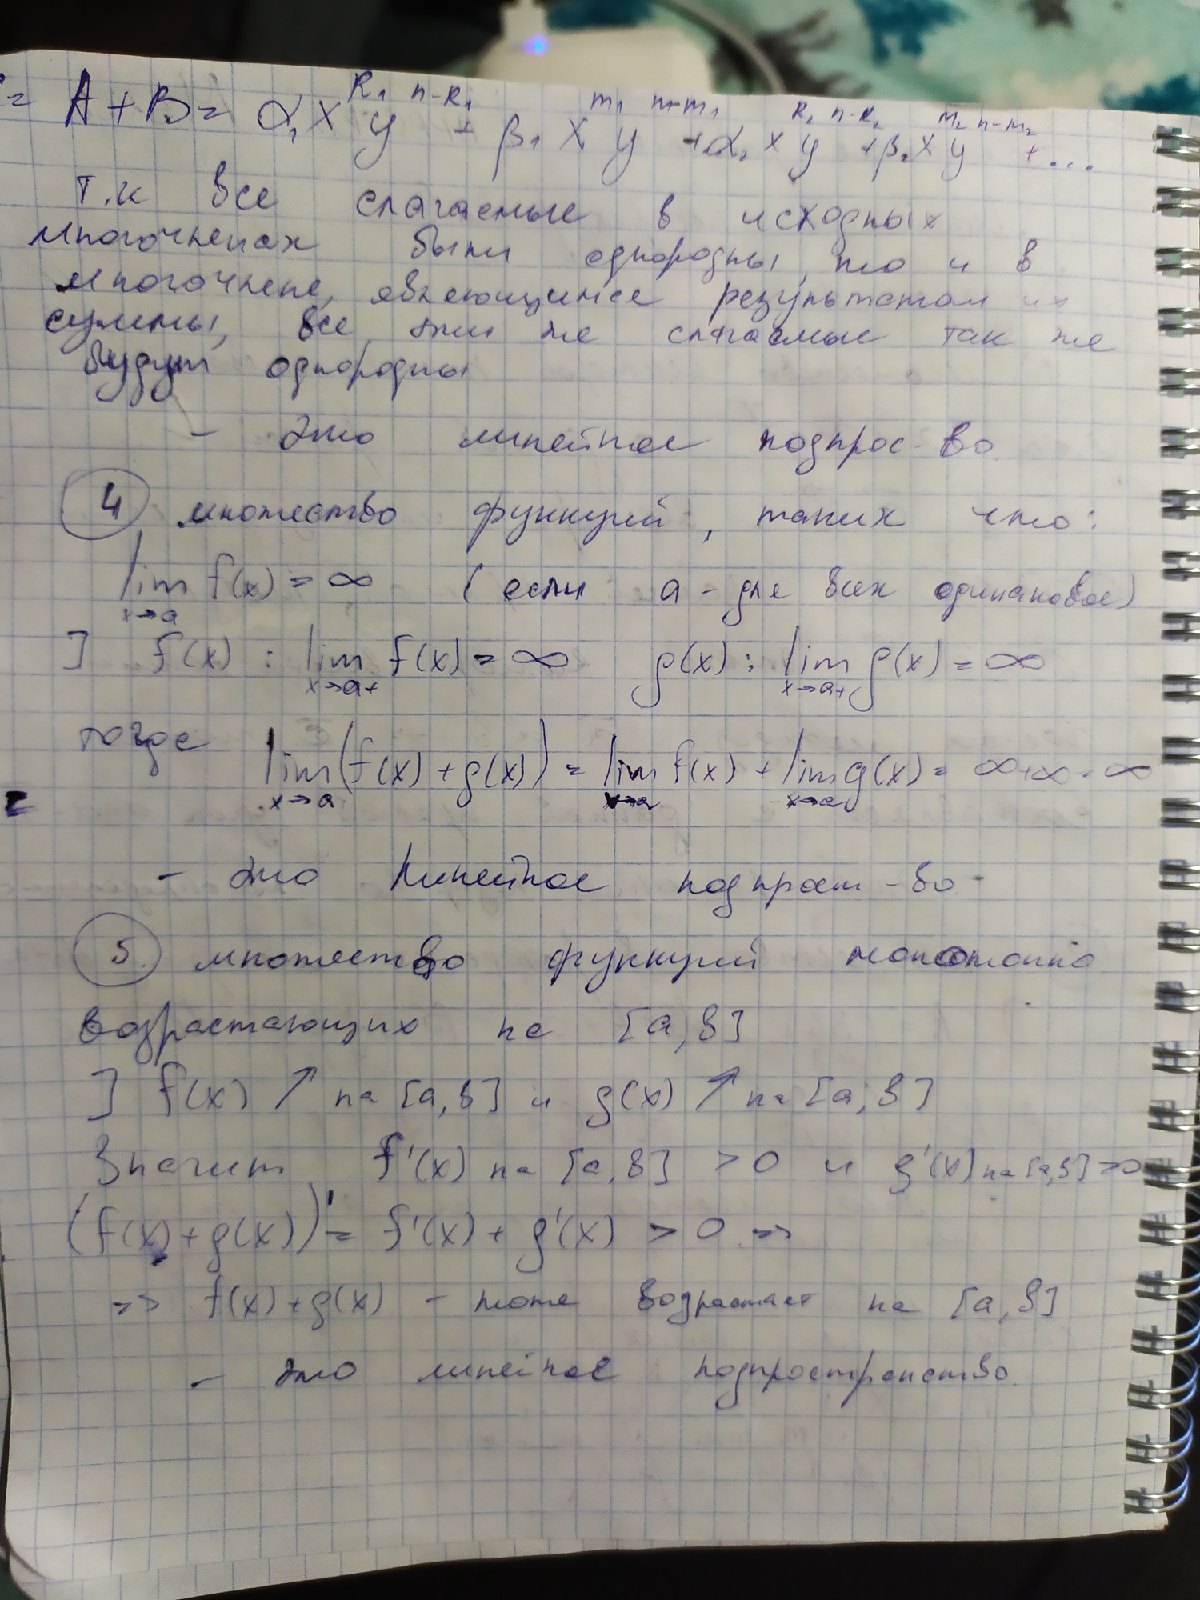 = A + B = α₁ x^k₁ y^n-k₁ + β₁ x^m₁ y^n-m₁ + α₂ x^k₂ y^n-k₂ + β₂ x^m₂ y^n-m₂ + ...
т.к все слагаемые в исходных
многочленах были однородны, то и в
многочлене, являющимся результатом их
суммы, все эти же слагаемые так же
будут однородны
- это линейное подпрос-во
4 множество функций, таких что:
lim x→a f(x) = ∞ (если a - для всех одинаковое)
] f(x) : lim x→a+ f(x) = ∞ g(x) : lim x→a+ g(x) = ∞
тогда lim x→a (f(x) + g(x)) = lim x→a f(x) + lim x→a g(x) = ∞+∞=∞
- это линейное подпрост-во
5. множество функций монотонно
возрастающих на [a, b]
] f(x) ↗ на [a, b] и g(x) ↗ на [a, b]
Значит f'(x) на [a, b] > 0 и g'(x) на [a, b] > 0
(f(x) + g(x))' = f'(x) + g'(x) > 0 =>
=> f(x) + g(x) - тоже возрастает на [a, b]
- это линейное подпространство.